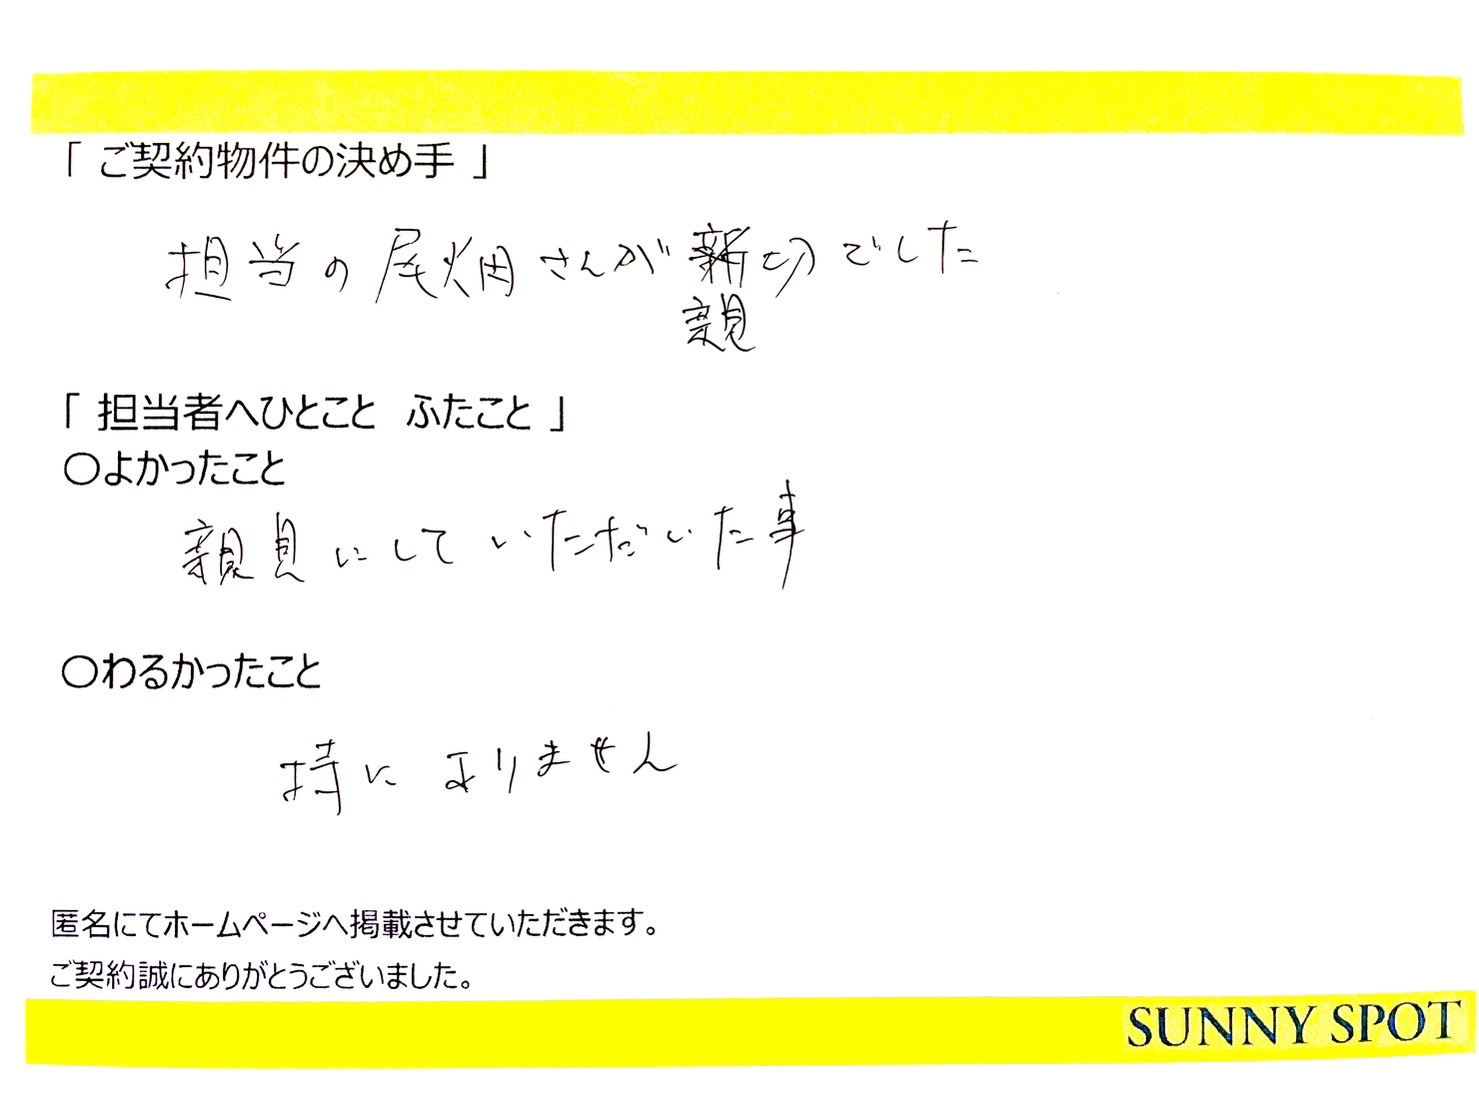 「 ご契約物件の決め手 」
担当の尾畑さんが新切でした
親
「 担当者へひとこと ふたこと 」
〇よかったこと
親見にしていただいた事
〇わるかったこと
持に ありません
匿名にてホームページへ掲載させていただきます。
ご契約誠にありがとうございました。
SUNNY SPOT